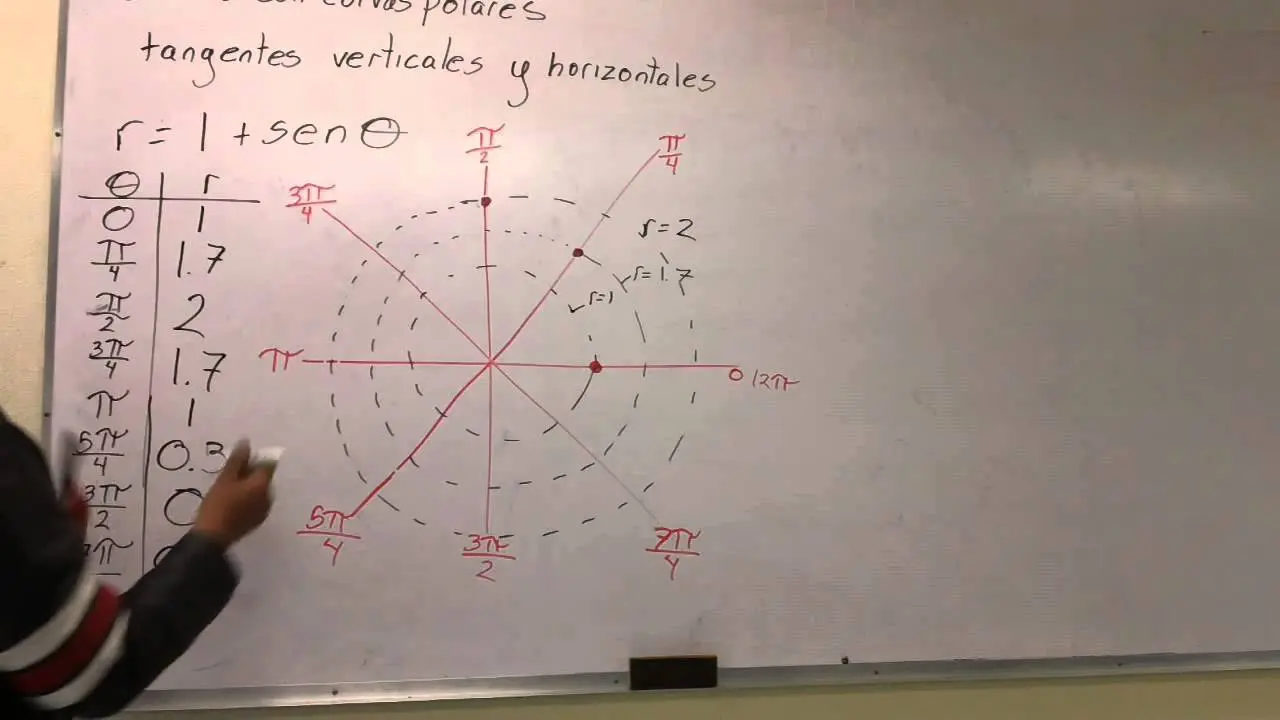 con curvas polares
tangentes verticales y horizontales
r = 1 + sen θ
θ r
0 1
π/4 1.7
π/2 2
3π/4 1.7
π 1
5π/4 0.3
3π/2 0
π
π/2
π/4
3π/4
r=2
r=1.7
r=1
π
0 12π
5π/4
3π/2
7π/4